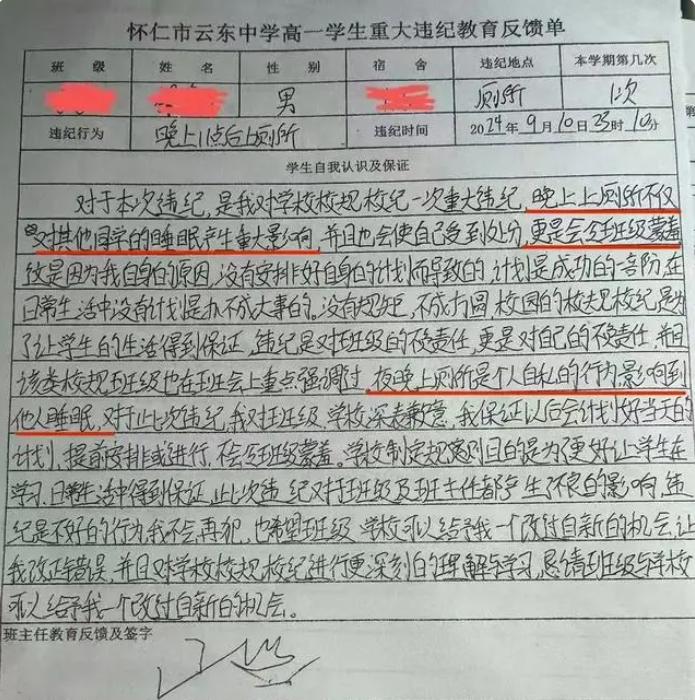 怀仁市云东中学高一学生重大违纪教育反馈单
班 级 姓 名 性 别 宿 舍 违纪地点 本学期第几次
男 厕所 1次
违纪行为 晚上11点后上厕所 违纪时间 2024年9月10日23时10分
学生自我认识及保证
对于本次违纪,是我对学校校规校纪一次重大违纪,晚上上厕所不仅
对其他同学的睡眠产生重大影响,并且也会使自己受到处分,更是会令班级蒙羞
这是因为我自身的原因,没有安排好自身的计划而导致的,计划是成功的一部阶,在
日常生活中没有计划是办不成大事的。没有规矩,不成方圆,校园的校规校纪是为
了让学生的生活得到保证,违纪是对班级的不负责任,更是对自己的不负责任,并且
该类校规班级也在班会上重点强调过,夜晚上厕所是个人自私的行为影响到
他人睡眠,对于此次违纪,我对班级、学校深表歉意,我保证以后会计划好当天的
计划,提前安排或进行,不会令班级蒙羞。学校制定规章则目的是为了更好让学生在
学习、日常生活中得到保证,此次违纪对班级及班主任都产生了不良的影响,违
纪是不好的行为,我不会再犯,也希望班级、学校可以给予我一个改过自新的机会,让
我改正错误,并且对学校校规校纪进行更深刻的理解与学习,恳请班级与学校
可以给予我一个改过自新的机会。
班主任教育反馈及签字